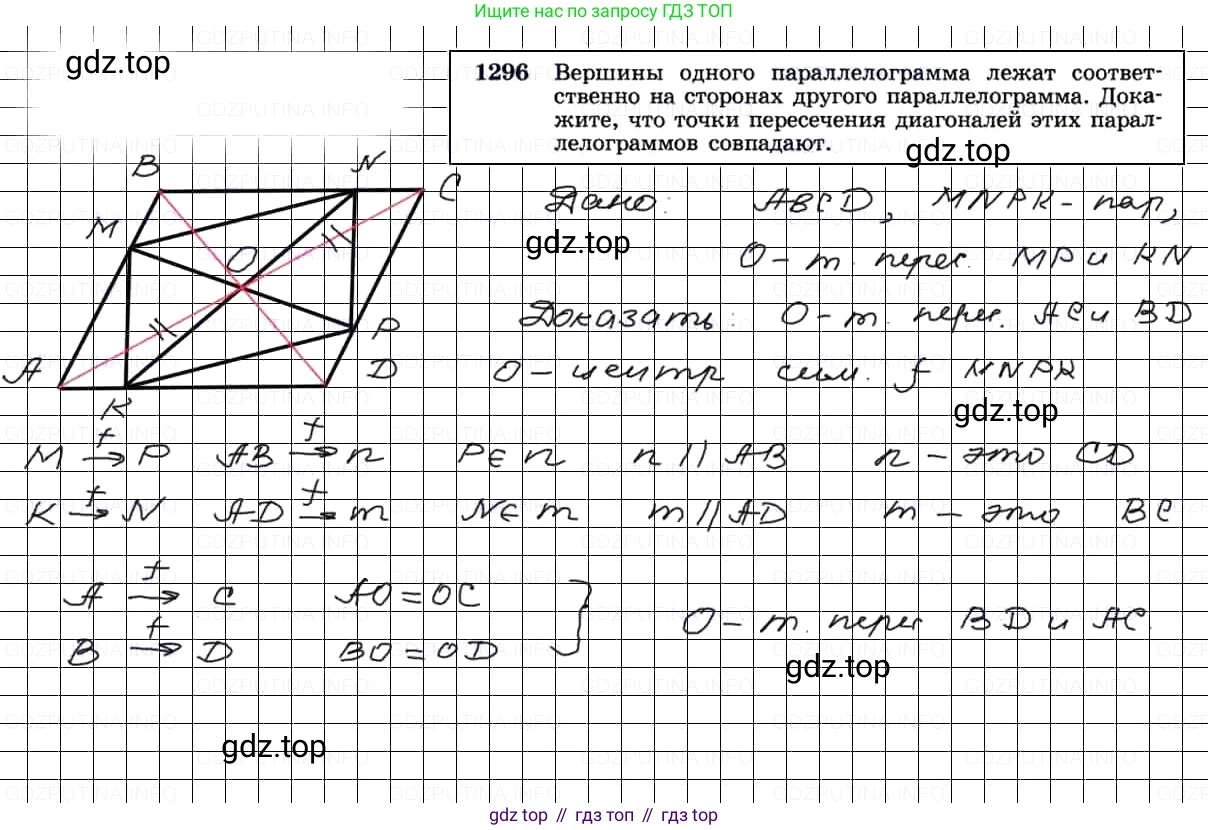 Ищите нас по запросу ГДЗ ТОП
gdz.top
1296 Вершины одного параллелограмма лежат соответ-
ственно на сторонах другого параллелограмма. Дока-
жите, что точки пересечения диагоналей этих парал-
лелограммов совпадают.
gdz.top
B N C
M O
P
A D
K
Дано: ABCD, MNPK - пар,
gdz.top
O - т. перес. MP и KN
Доказать: O - т. перес. AC и BD
O - центр сим. f MNPK
gdz.top
M →f P AB →f n P ∈ n n || AB n - это CD
K →f N AD →f m N ∈ m m || AD m - это BC
A →f C AO = OC
B →f D BO = OD
O - т. перес BD и AC.
gdz.top
gdz.top
gdz top // гдз топ // gdz.top
GDZPUTINA.INFO